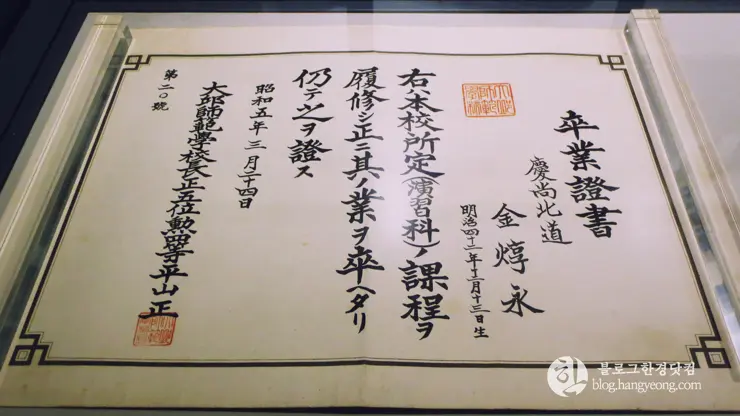 卒業證書
慶尚北道
金焞永
明治四十二年十二月十三日生
右ハ本校所定(演習科)ノ課程ヲ
履修シ正ニ其ノ業ヲ卒ヘタリ
仍テ之ヲ證ス
昭和五年三月二十四日
大邱師範學校長正五位勲四等平山正
第二〇號
블로그한경닷컴
blog.hangyeong.com